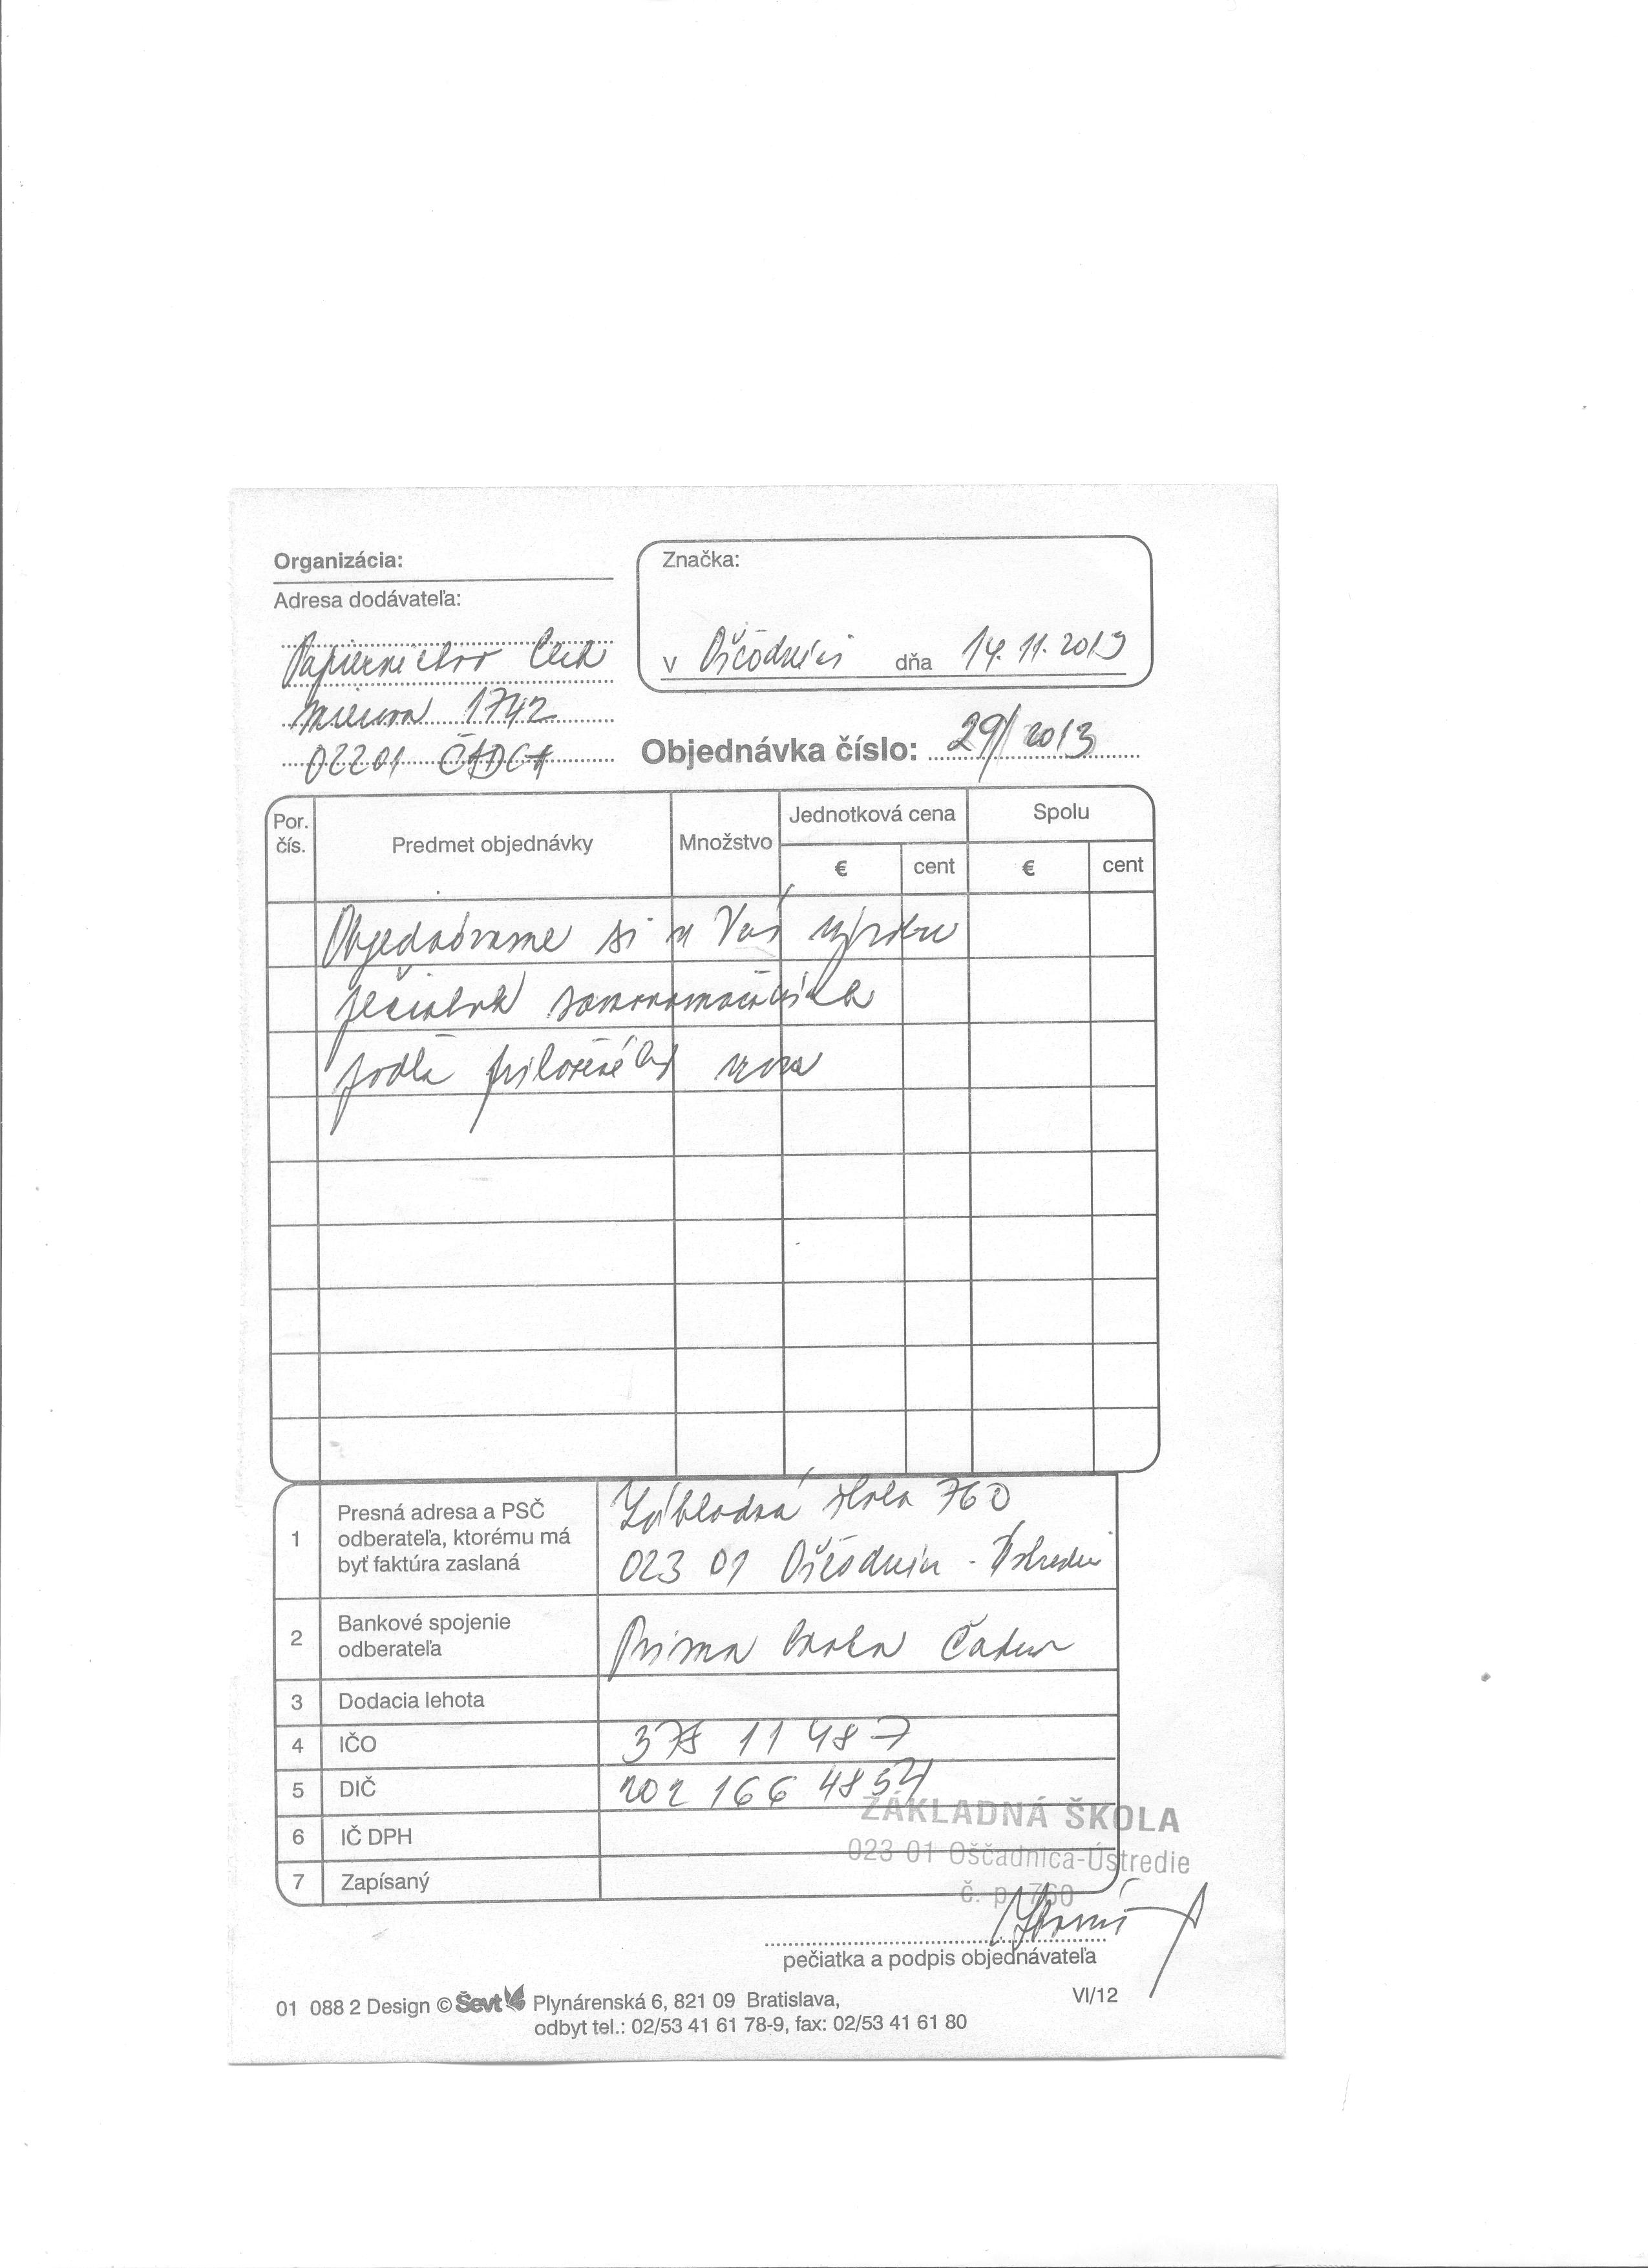 Organizácia:
Adresa dodávateľa:
Papierníctvo
1742
02201 ČADCA
Značka:
v Oščadnici dňa 14.11.2013
Objednávka číslo: 29/2013
Por. čís.
Predmet objednávky
Množstvo
Jednotková cena
Spolu
€ cent € cent
Objednávame si u Vás výrobu
pečiatok samonamáčacích
podľa priloženého vzoru
1 Presná adresa a PSČ
odberateľa, ktorému má
byť faktúra zaslaná
Základná škola 760
023 01 Oščadnica - Ústredie
2 Bankové spojenie
odberateľa
Prima banka Čadca
3 Dodacia lehota
4 IČO 378 11 487
5 DIČ 202 166 4854
6 IČ DPH
7 Zapísaný
ZÁKLADNÁ ŠKOLA
023 01 Oščadnica-Ústredie
č. p. 760
pečiatka a podpis objednávateľa
01 088 2 Design © Ševt Plynárenská 6, 821 09 Bratislava, VI/12
odbyt tel.: 02/53 41 61 78-9, fax: 02/53 41 61 80